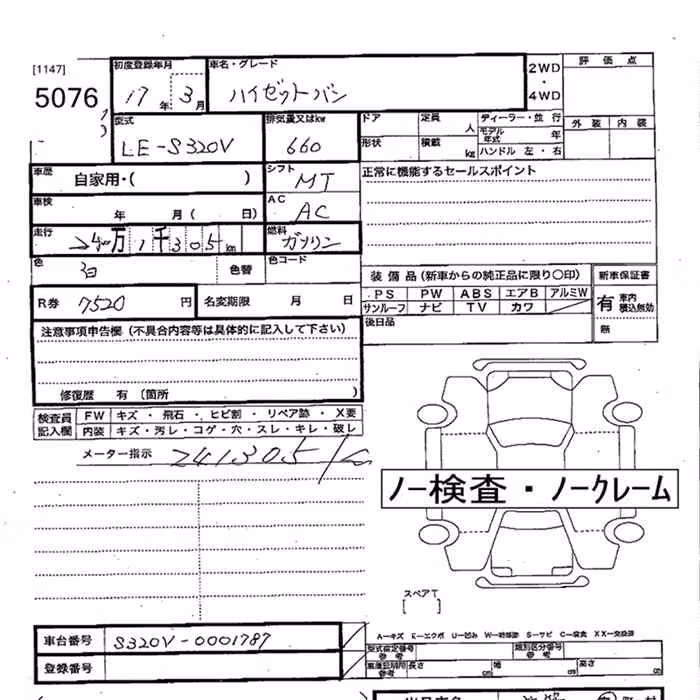 [1147]
5076
初度登録年月
17年 3月
車名・グレード
ハイゼットバン
2WD
・
4WD
評価点
外装 内装
型式
LE-S320V
排気量又はkw
660
ドア 定員 人
形状 積載 kg
ディーラー・並行
モデル年式 年
ハンドル 左・右
車歴
自家用・( )
シフト
MT
正常に機能するセールスポイント
車検
年 月( 日)
AC
AC
走行
24万1千305km
燃料
ガソリン
色
白
色替
色コード
装備品(新車からの純正品に限り○印)
新車保証書
PS PW ABS エアB アルミW
サンルーフ ナビ TV カワ
有 車内積込無効
無
後日品
R券 7520円
名変期限 月 日
注意事項申告欄(不具合内容等は具体的に記入して下さい)
修復歴 有 〔箇所 )
検査員記入欄
FW キズ・飛石・ヒビ割・リペア跡・X要
内装 キズ・汚レ・コゲ・穴・スレ・キレ・破レ
メーター指示 241305
ノー検査・ノークレーム
スペアT
[ ]
車台番号 S320V-0001787
登録番号
A-キズ E-エクボ U-凹み S-サビ C-腐食 XX-交換済
型式指定番号
参考
類別区分番号
参考
長さ cm 幅 cm 高さ cm